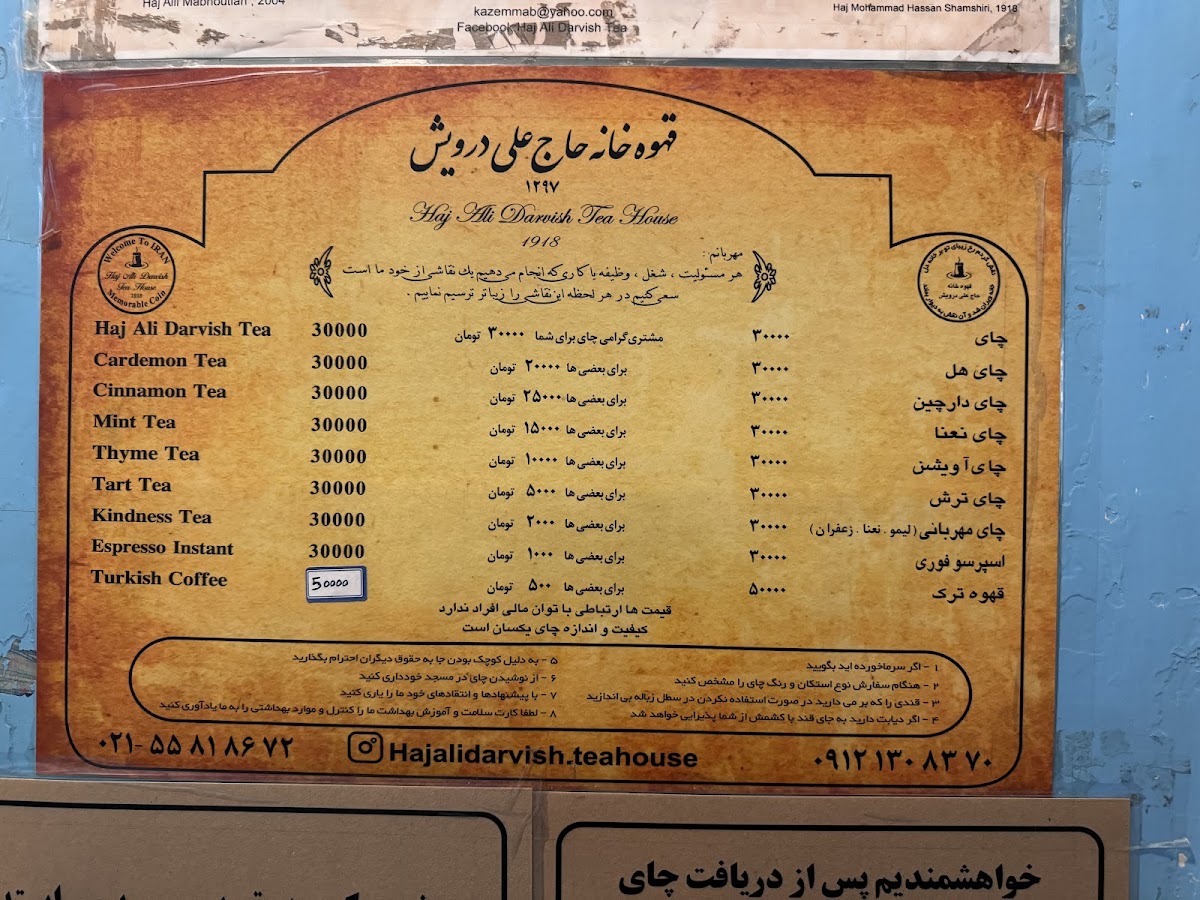 Haj Ali Mabhoutian , 2004
kazemmab@yahoo.com
Facebook:Haj Ali Darvish Tea
Haj Mohammad Hassan Shamshiri, 1918
قهوه خانه حاج علی درویش
۱۲۹۷
Haj Ali Darvish Tea House
1918
Welcome To IRAN
Haj Ali Darvish
Tea House
1918
Memorable Coin
قهوه خانه
حاج علی درویش
مهربانم :
هر مسئولیت ، شغل ، وظیفه یا کاری که انجام می دهیم یك نقاشی از خود ما است
سعی کنیم در هر لحظه این نقاشی را زیبا تر ترسیم نماییم .
Haj Ali Darvish Tea 30000 مشتری گرامی چای برای شما ۳۰۰۰۰ تومان ۳۰۰۰۰ چای
Cardemon Tea 30000 برای بعضی ها ۲۰۰۰۰ تومان ۳۰۰۰۰ چای هل
Cinnamon Tea 30000 برای بعضی ها ۲۵۰۰۰ تومان ۳۰۰۰۰ چای دارچین
Mint Tea 30000 برای بعضی ها ۱۵۰۰۰ تومان ۳۰۰۰۰ چای نعنا
Thyme Tea 30000 برای بعضی ها ۱۰۰۰۰ تومان ۳۰۰۰۰ چای آویشن
Tart Tea 30000 برای بعضی ها ۵۰۰۰ تومان ۳۰۰۰۰ چای ترش
Kindness Tea 30000 برای بعضی ها ۲۰۰۰ تومان ۳۰۰۰۰ چای مهربانی (لیمو . نعنا . زعفران)
Espresso Instant 30000 برای بعضی ها ۱۰۰۰ تومان ۳۰۰۰۰ اسپرسو فوری
Turkish Coffee 50000 برای بعضی ها ۵۰۰ تومان ۵۰۰۰۰ قهوه ترک
قیمت ها ارتباطی با توان مالی افراد ندارد
کیفیت و اندازه چای یکسان است
۱ - اگر سرماخورده اید بگویید
۲ - هنگام سفارش نوع استکان و رنگ چای را مشخص کنید
۳ - قندی را که بر می دارید در صورت استفاده نکردن در سطل زباله بی اندازید
۴ - اگر دیابت دارید به جای قند با کشمش از شما پذیرایی خواهد شد
۵ - به دلیل کوچک بودن جا به حقوق دیگران احترام بگذارید
۶ - از نوشیدن چای در مسجد خودداری کنید
۷ - با پیشنهادها و انتقادهای خود ما را یاری کنید
۸ - لطفا کارت سلامت و آموزش بهداشت ما را کنترل و موارد بهداشتی را به ما یادآوری کنید
۰۲۱- ۵۵ ۸۱ ۸۶ ۷۲
Hajalidarvish.teahouse
۰۹۱۲ ۱۳۰ ۸۳ ۷۰
خواهشمندیم پس از دریافت چای